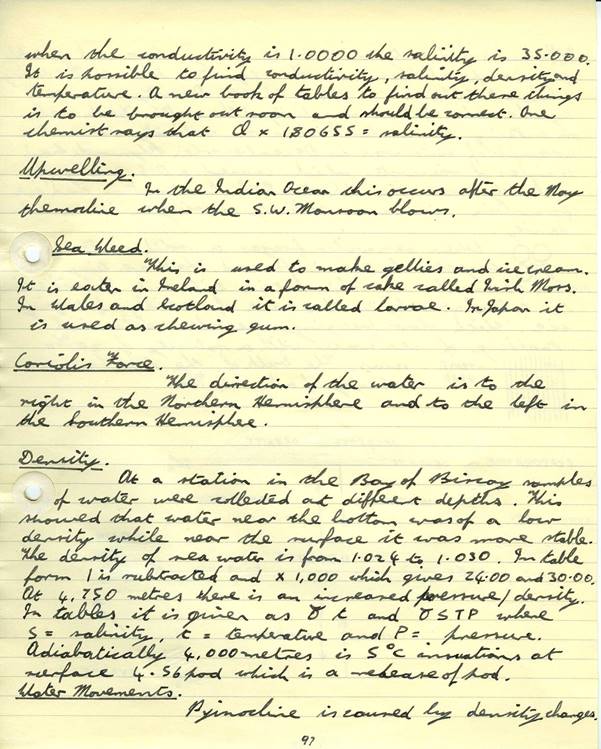 when the conductivity is 1.0000 the salinity is 35.000.
It is possible to find conductivity, salinity, density and
temperature. A new book of tables to find out these things
is to be brought out soon and should be correct. One
chemist says that Cl x 1.80655 = salinity.
Upwelling.
In the Indian Ocean this occurs after the May
themocline when the S.W. Monsoon blows.
Sea Weed.
This is used to make gellies and ice cream.
It is eaten in Ireland in a form of cake called Irish Moss.
In Wales and Scotland it is called larvae. In Japan it
is used as chewing gum.
Coriolis Force.
The direction of the water is to the
right in the Northern Hemisphere and to the left in
the Southern Hemisphee.
Density.
At a station in the Bay of Biscay samples
of water were collected at different depths. This
showed that water near the bottom was of a low
density while near the surface it was more stable.
The density of sea water is from 1.024 to 1.030. In table
form 1 is subtracted and x 1,000 which gives 24.00 and 30.00.
At 4,750 metres there is an increased pressure/density.
In tables it is given as σ t and σ STP where
S = salinity, t = temperature and P = pressure.
Adiabatically 4,000 metres is 5°C insuations at
surface 4.56 pod which is a release of pod.
Water Movements.
Pyinocline is caused by density changes.
97